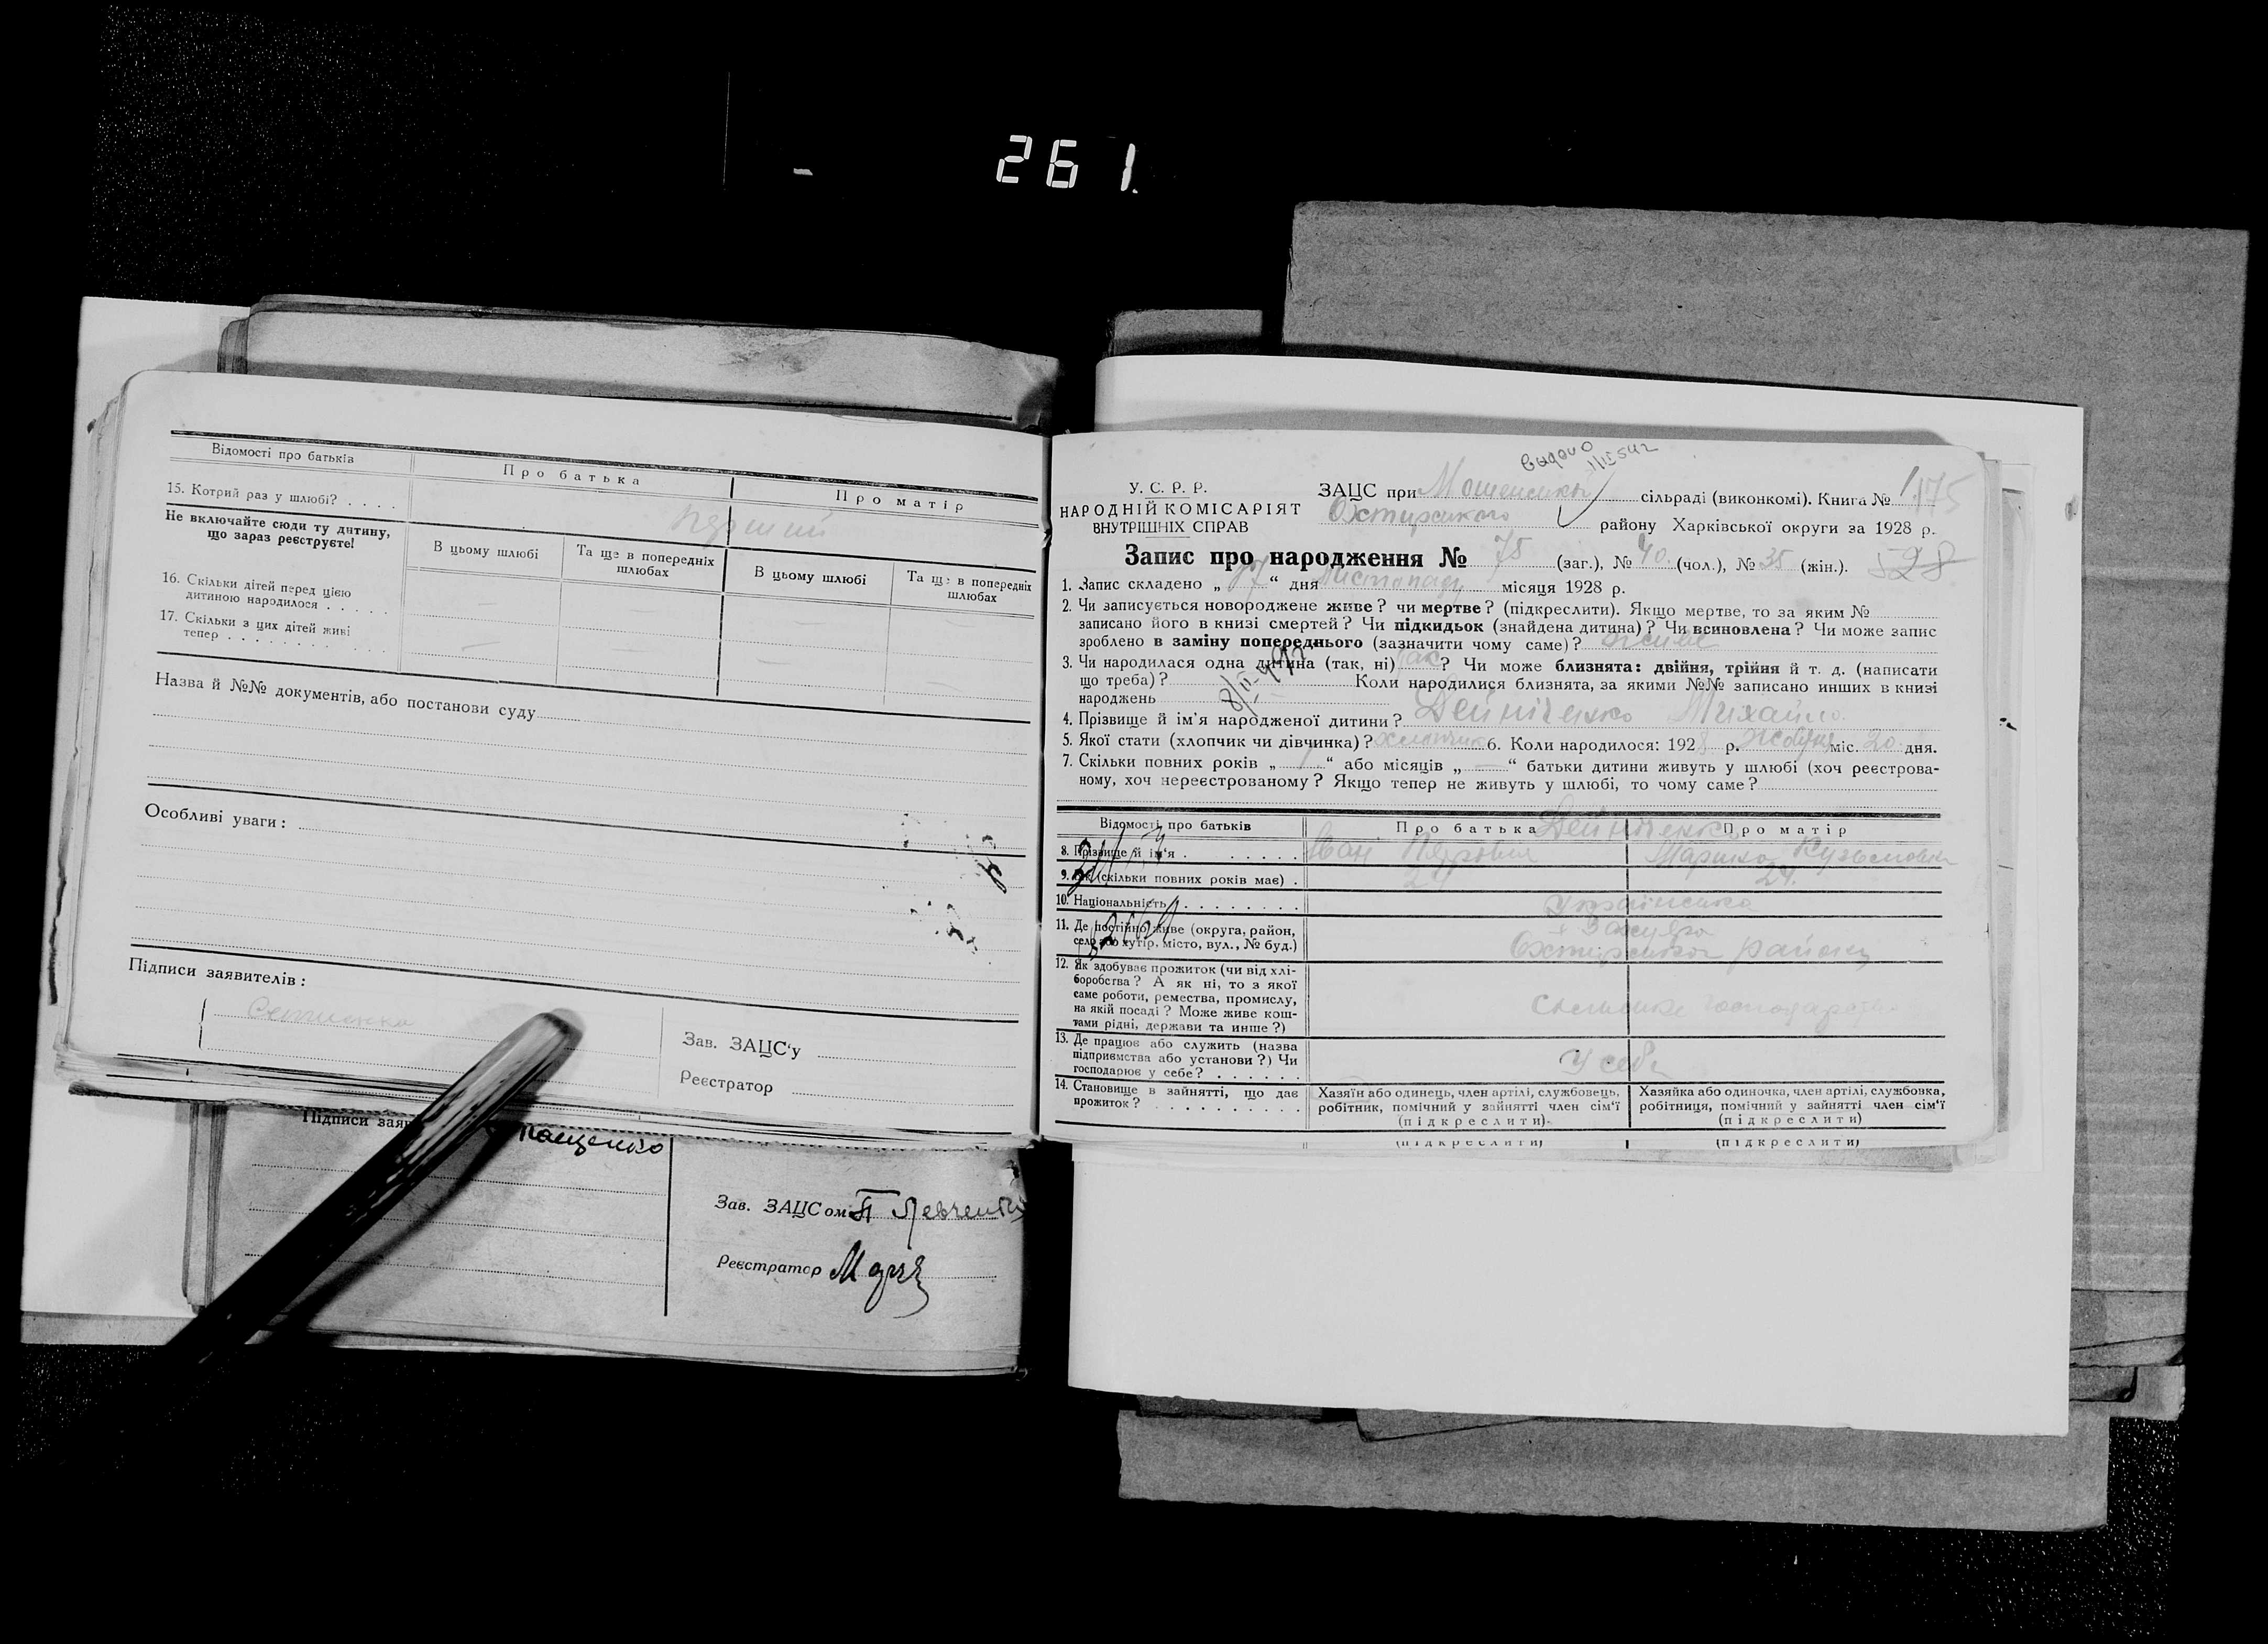 261.
Відомості про батьків
Про батька
Про матір
15. Котрий раз у шлюбі? . . . .
перший
Не включайте сюди ту дитину,
що зараз реєструєте!
В цьому шлюбі
Та ще в попередніх
шлюбах
В цьому шлюбі
Та ще в попередніх
шлюбах
16. Скільки дітей перед цією
дитиною народилося . . . . .
— —
17. Скільки з цих дітей живі
тепер . . . . . . . . . .
— — — —
Назва й №№ документів, або постанови суду
Особливі уваги:
Підписи заявителів:
Зав. ЗАЦС'у
Реєстратор
Підписи заяв
Зав. ЗАЦСом П Левченко
Реєстратор
выдано
У. С. Р. Р.
НАРОДНІЙ КОМІСАРІЯТ
ВНУТРІШНІХ СПРАВ
ЗАЦС при сільраді (виконкомі). Книга № 1 175
Охтирського району Харківської округи за 1928 р.
Запис про народження № 75 (заг.), № 40 (чол.), № 35 (жін.). 528
1. Запис складено „17“ дня листопаду місяця 1928 р.
2. Чи записується новороджене живе? чи мертве? (підкреслити). Якщо мертве, то за яким №
записано його в книзі смертей? Чи підкидьок (знайдена дитина)? Чи всиновлена? Чи може запис
зроблено в заміну попереднього (зазначити чому саме)? живе
3. Чи народилася одна дитина (так, ні) так? Чи може близнята: двійня, трійня й т. д. (написати
що треба)? Коли народилися близнята, за якими №№ записано инших в книзі
народжень
4. Прізвище й ім'я народженої дитини? Дейніченко Михайло
5. Якої стати (хлопчик чи дівчинка)? хлопчик 6. Коли народилося: 1928 р. жовтня міс. 20 дня.
7. Скільки повних років „1“ або місяців „—“ батьки дитини живуть у шлюбі (хоч реєстрова-
ному, хоч нереєстрованому? Якщо тепер не живуть у шлюбі, то чому саме?
Відомості про батьків
Про батька
Дейніченко
Про матір
8. Прізвище й ім'я . . . . . . .
Іван Петрович
Маришка Кузьмовна
9. Вік (скільки повних років має) .
24
24.
10. Національність . . . . . . . .
Українська
11. Де постійно живе (округа, район,
село або хутір, місто, вул., № буд.)
Охтирського району
12. Як здобуває прожиток (чи від хлі-
боробства? А як ні, то з якої
саме роботи, ремества, промислу,
на якій посаді? Може живе кош-
тами рідні, держави та инше?)
сільське господарство
13. Де працює або служить (назва
підприємства або установи?) Чи
господарює у себе? . . . . . .
У себе
14. Становище в зайнятті, що дає
прожиток? . . . . . . . . . .
Хазяїн або одинець, член артілі, службовець,
робітник, помічний у зайнятті член сім'ї
(підкреслити)
Хазяйка або одиночка, член артілі, службовка,
робітниця, помічний у зайнятті член сім'ї
(підкреслити)
(підкреслити)
(підкреслити)